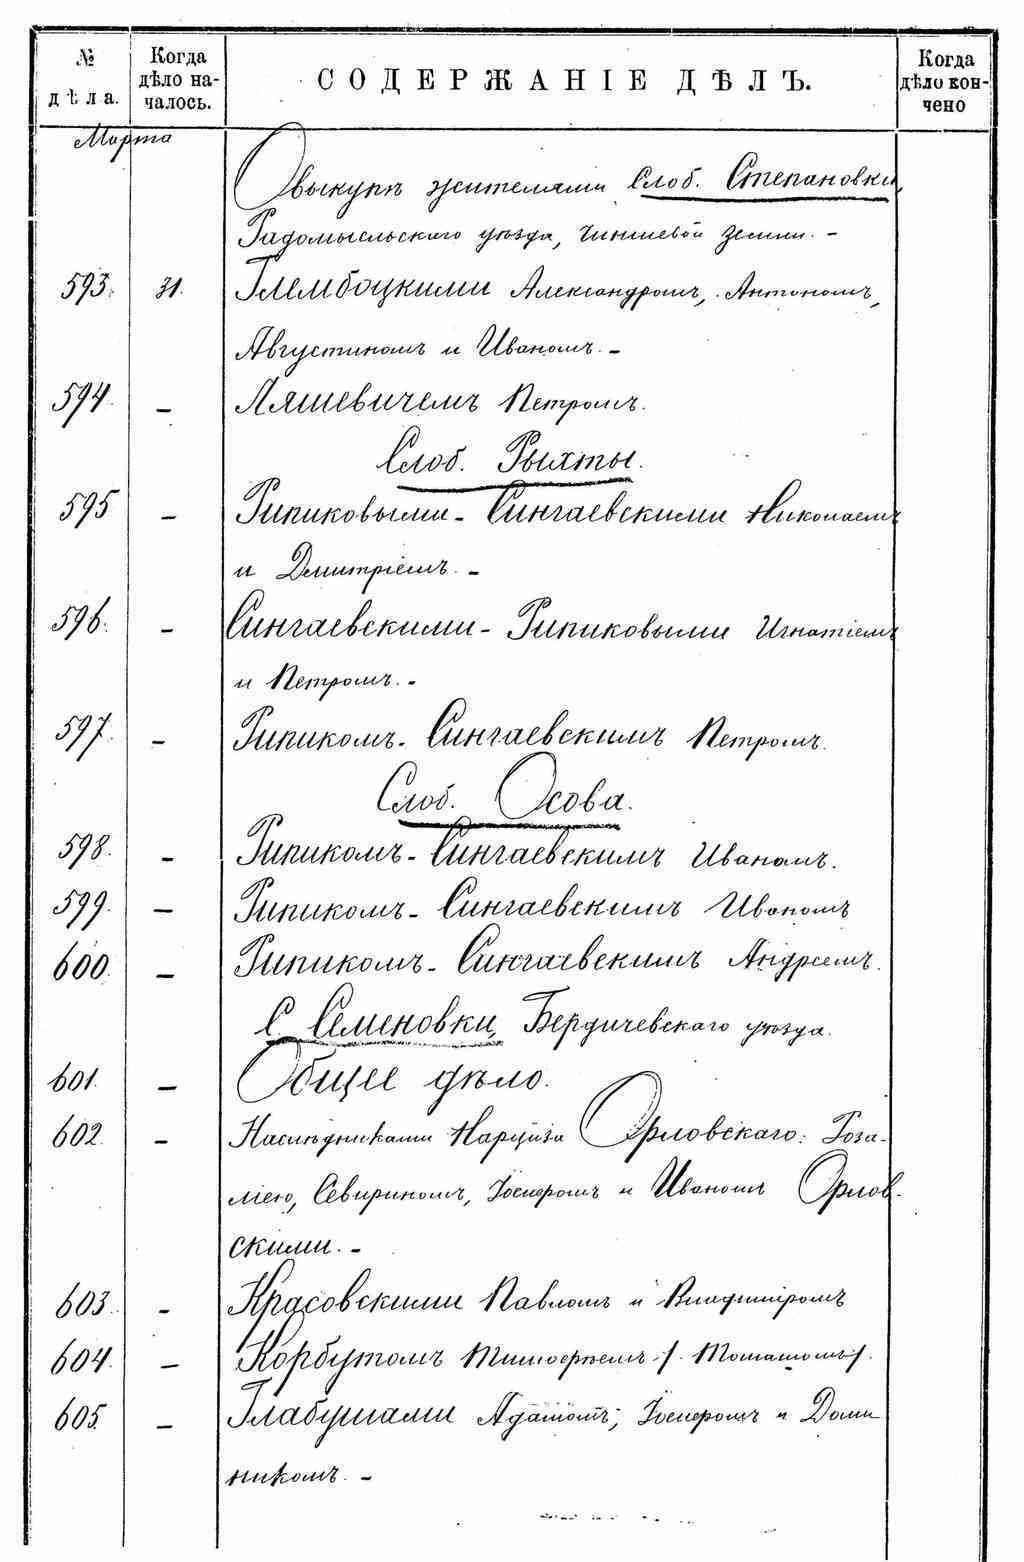 № дѣла.
Когда дѣло на-
чалось.
СОДЕРЖАНІЕ ДѢЛЪ.
Когда дѣло кон-
чено
Марта
О выкупѣ жителями Слоб. Степановки,
Радомысльскаго уѣзда, чиншевой земли. -
593. 31. Глембоцкими Александромъ, Антономъ,
Августиномъ и Иваномъ. -
594. - Ляшевичемъ Петромъ.
Слоб. Рыхты.
595 - Рипиковыми-Сингаевскими Николаемъ
и Дмитріемъ. -
596. - Сингаевскими-Рипиковыми Игнатіемъ
и Петромъ. -
597. - Рипикомъ-Сингаевскимъ Петромъ.
Слоб. Осова.
598. - Рипикомъ-Сингаевскимъ Иваномъ.
599. - Рипикомъ-Сингаевскимъ Иваномъ
600. - Рипикомъ-Сингаевскимъ Андреемъ.
С. Семеновки, Бердичевскаго уѣзда.
601. - Общее дѣло.
602. - Наслѣдниками Нарциза Орловскаго: Роза-
ліею, Севириномъ, Іосифомъ и Иваномъ Орлов-
скими. -
603. - Красовскими Павломъ и Владиміромъ
604. - Корбутомъ Тимофѣемъ /Томашомъ/.
605. - Глабушами Адамомъ, Іосифомъ и Доми
никомъ. -